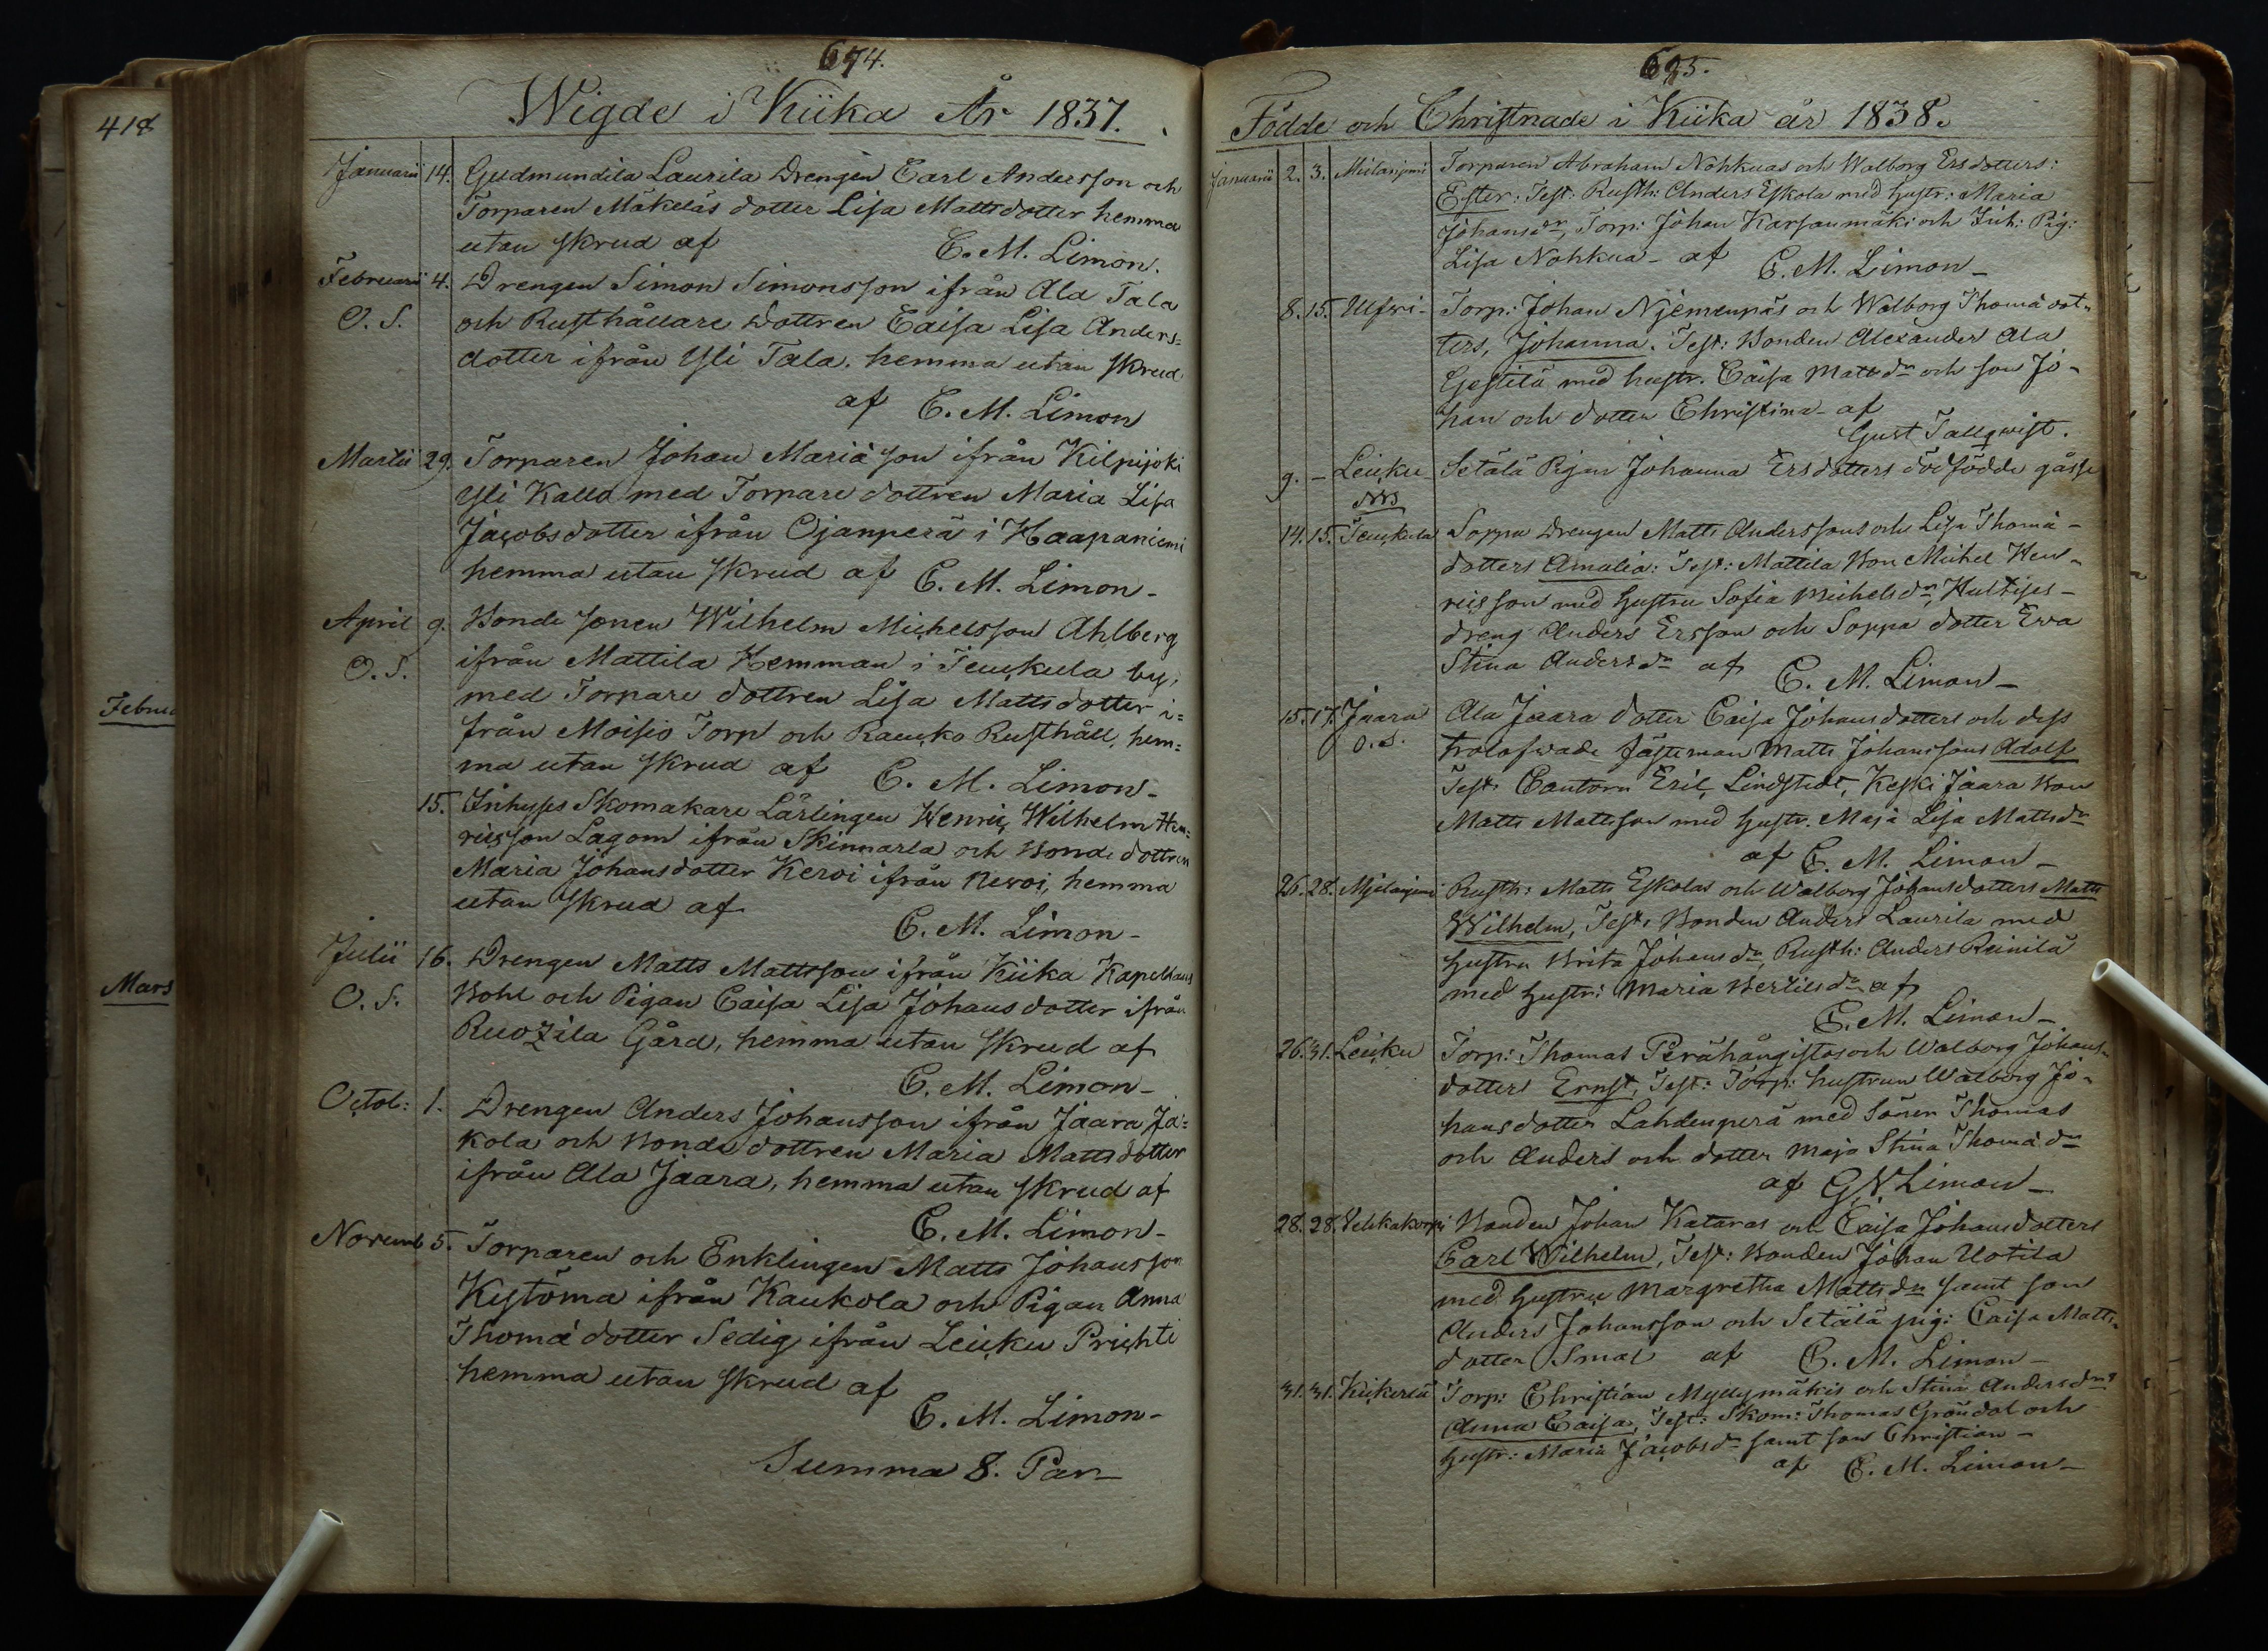 418
Februa
Mars
674.
Wigde i Kiika År 1837.
Januarii 14. Gudmundila Laurila Drengen Carl Andersson och
Torparen Mäkeläs dotter Lisa Mattsdotter hemma
utan skrud af C. M. Limon.
Februarii 4. Drengen Simon Simonsson ifrån Ala Tala
O. S. och Rusthållare dottren Caisa Lisa Anders=
dotter ifrån Yli Tala. hemma utan skrud
af C. M. Limon
Martii 29. Torparen Johan Mariä son ifrån Kilpijoki
Yli Kallo med Torpare dottren Maria Lisa
Jacobsdotter ifrån Ojanperä i Haapaniemi
hemma utan skrud af C. M. Limon-
April 9. Bonde sonen Wilhelm Michelsson Ahlberg
O. S. ifrån Mattila Hemman i Jeuckula by,
med Torpare dottren Lisa Mattsdotter i=
från Moisio Torp och Raucko Rusthåll, hem=
ma utan skrud af C. M. Limon-
15. Inhyses Skomakare Lärlingen Henric Wilhelm Hen=
ricsson Lagom ifrån Skinnarla och Bonde dottren
Maria Johansdotter Keroi ifrån Keroi, hemma
utan skrud af
C. M. Limon-
Julii 16. Drengen Matts Mattsson ifrån Kiika Kapellans
O. S. Bohl och Pigan Caisa Lisa Johansdotter ifrån
Ruozila Gård, hemma utan skrud af
C. M. Limon-
Octob: 1. Drengen Anders Johansson ifrån Jaara Ja=
kola och Bonde dottren Maria Mattsdotter
ifrån Ala Jaara, hemma utan skrud af
C. M. Limon-
Novemb 5. Torparen och Enklingen Matts Johansson
Kystömä ifrån Kaukola och Pigan Anna
Thomä dotter Sedig ifrån Leicku Prichti
hemma utan skrud af
C. M. Limon-
Summa 8. Par-
695.
Födde och Christnade i Kiika år 1838.
Januarii 2. 3. Torparen Abraham Nohkuas och Walborg Ersdotters:
Ester: Test: Rusth: Anders Eskola med hustr: Maria
Johansdr, Torp: Johan Karsanmäki och Inh: Pig:
Lisa Nohkua- af C. M. Limon-
8. 15. Ulfvi- Torp: Johan Njemenpäs och Walborg Thomä dot-
ters, Johanna. Test: Bonden Alexander Ala
Gestilä med hustr. Caisa Mattsdr och son Jo-
han och dotter Christina- af
Gust Tallqwist.
9. - Leicku- Setälä Pigan Johanna Ersdotters dödfödde gåsse
14. 15. Jeuckula Soppa Drengen Matts Anderssons och Lisa Thomä-
dotters Amalia: Test: Mattila Bon Michel Hen-
ricsson med hustru Sofia Michelsdr,
dreng Anders Ersson och Soppa dotter Eva
Stina Andersdr af C. M. Limon-
15. 17. Jaara Ala Jaara dotter Caisa Johansdotters och dess
O. S. trolofwade fästeman Matts Johanssons Adolf
Test: Cantorn Eric Lindstedt, Keski Jaara Bon
Matts Mattsson med hustr. Maja Lisa Mattsdr
af C. M. Limon-
26. 28. Rusth: Matts Eskolas och Walborg Johansdotters Matts
Wilhelm, Test: Bonden Anders Laurila med
hustru Brita Johansdr, Rusth: Anders Reinilä
med hustr: Maria Bertilsdr af
C. M. Limon-
26. 31. Leicku Torp: Thomas Perähångistos och Walborg Johans-
dotters Ernst, Test: Torp: hustrun Walborg Jo-
hansdotter Lahdenperä med söner Thomas
och Anders och dotter Maja Stina Thomä dr
af G N Limon-
28. 28. Wehkakorpi Bonden Johan Kataras och Caisa Johansdotters
Carl Wilhelm, Test: Bonden Johan Uotila
med hustru Margretha Mattsdr samt son
Anders Johansson och Setälä pig: Caisa Matts-
dotter Smal af C. M. Limon-
31. 31. Kiikerlä Torp: Christian Myllymäkis och Stina Andersdrs
Anna Caisa, Test: Skom: Thomas Gröndal och
hustr: Maria Jacobsdr samt son Christian-
af C. M. Limon-